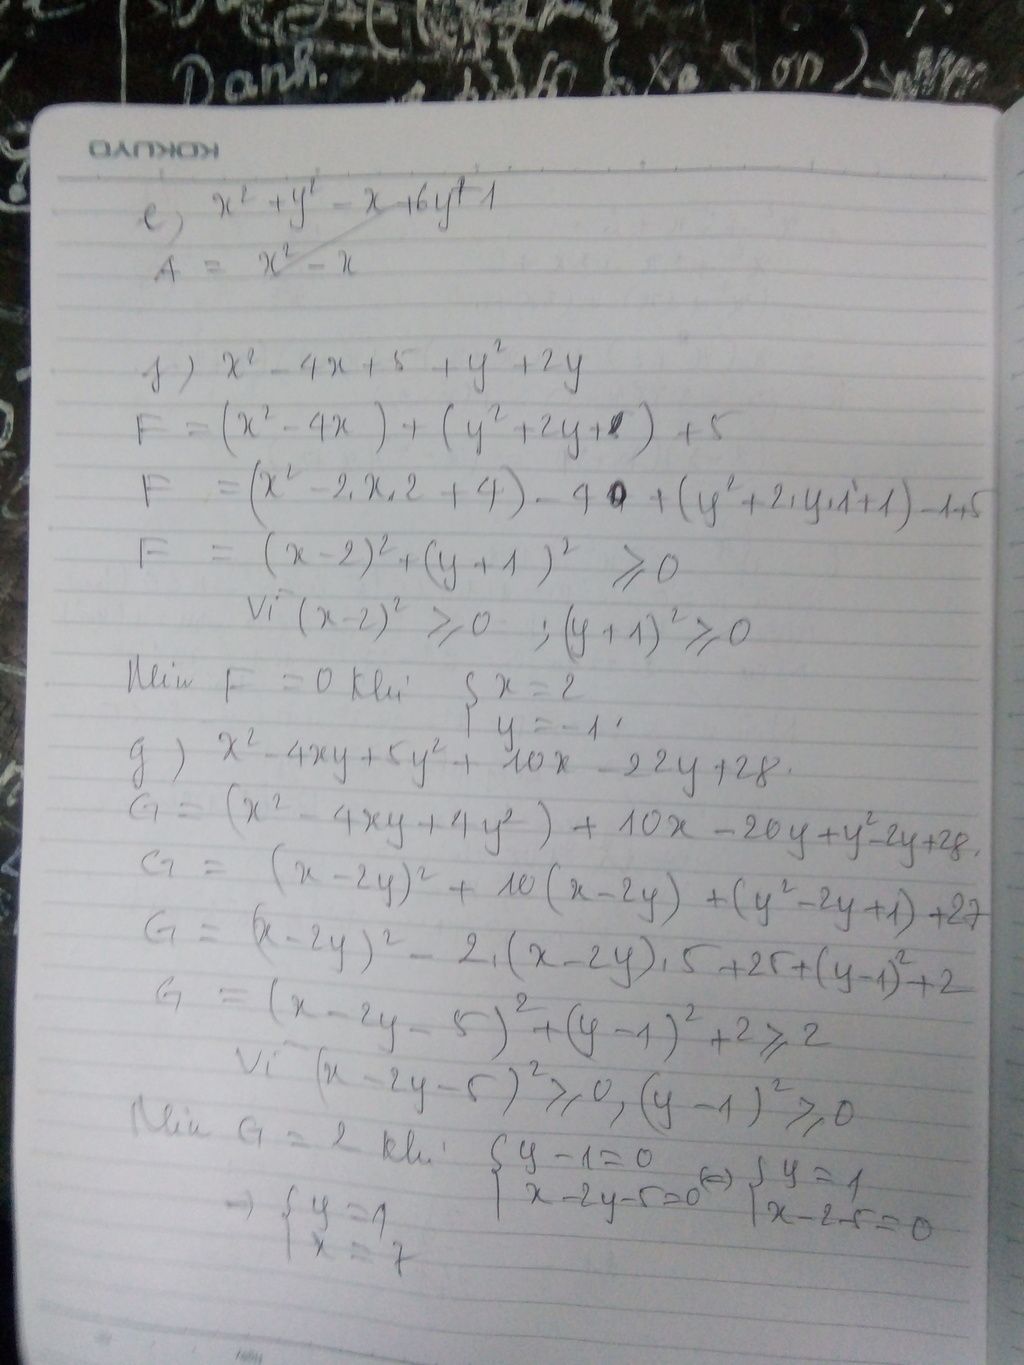 Danh.
Xa Son)
KOKUYO
e) x² + y² - x + 6y + 1
A = x² - x
f) x² - 4x + 5 + y² + 2y
F = (x² - 4x) + (y² + 2y + ) + 5
F = (x² - 2.x.2 + 4) - 4 + (y² + 2.y.1 + 1) - 1 + 5
F = (x - 2)² + (y + 1)² ⩾ 0
Vì (x - 2)² ⩾ 0 ; (y + 1)² ⩾ 0
Min F = 0 khi { x = 2
y = -1.
g) x² - 4xy + 5y² + 10x - 22y + 28.
G = (x² - 4xy + 4y²) + 10x - 20y + y² - 2y + 28.
G = (x - 2y)² + 10(x - 2y) + (y² - 2y + 1) + 27
G = (x - 2y)² - 2.(x - 2y).5 + 25 + (y - 1)² + 2
G = (x - 2y - 5)² + (y - 1)² + 2 ⩾ 2
Vì (x - 2y - 5)² ⩾ 0, (y - 1)² ⩾ 0
Min G = 2 khi { y - 1 = 0 (=) { y = 1
x - 2y - 5 = 0 x - 2 - 5 = 0
→ { y = 1
x = 7